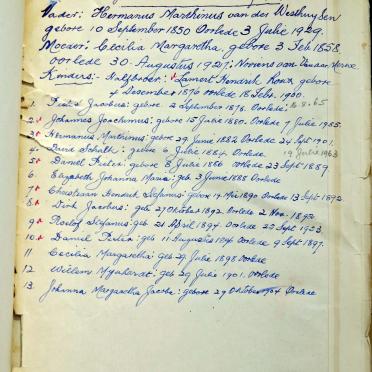 Vader: Hermanus Marthinus van der Westhuyzen
gebore 10 September 1850 Oorlede 3 Julie 1929.
Moeder: Cecilia Margaretha, gebore 3 Feb 1858
oorlede 30 Augustus 1927; Noriens van der Merwe
Kinders: Halfbroer: Lamert Hendrik Roux gebore
4 Desember 1876 oorlede 18 Febr. 1900.
1. Jacobus: gebore 2 September 1878. Oorlede: 8.65
2. Johannes Joachimus: gebore 15 Julie 1880. Oorlede 7 Julie 1955.
3. Hermanus Marthinus: gebore 29 June 1882 Oorlede 24 Sept 1901.
4. Schalk: gebore 6 Julie 1884 Oorlede 19 Julie 1963
5. Daniel Pieter: gebore 8 Julie 1886 Oorlede 23 Sept 1889
6. Elizabeth Johanna Maria: geb 3 June 1888 Oorlede
7. Christiaan Hendrik Stefanus: gebore 14 Mei 1890 Oorlede 13 Sept 1892.
8. Dirk Jacobus: geb 27 Oktober 1892. Oorlede 2 Nov.
9. Roelof Stefanus: geb. 21 April 1894. Oorlede 22 Sept 1953
10. Daniel Pieter: geb 11 Augustus Oorlede 9 Sept 1897.
11 Cecilia Margaretha: geb 29 Julie 1898 Oorlede
12 Willem Mynhardt: geb 29 Julie 1901. Oorlede
13. Johanna Margaretha Jacoba: gebore 29 Oktober 1904 Oorlede